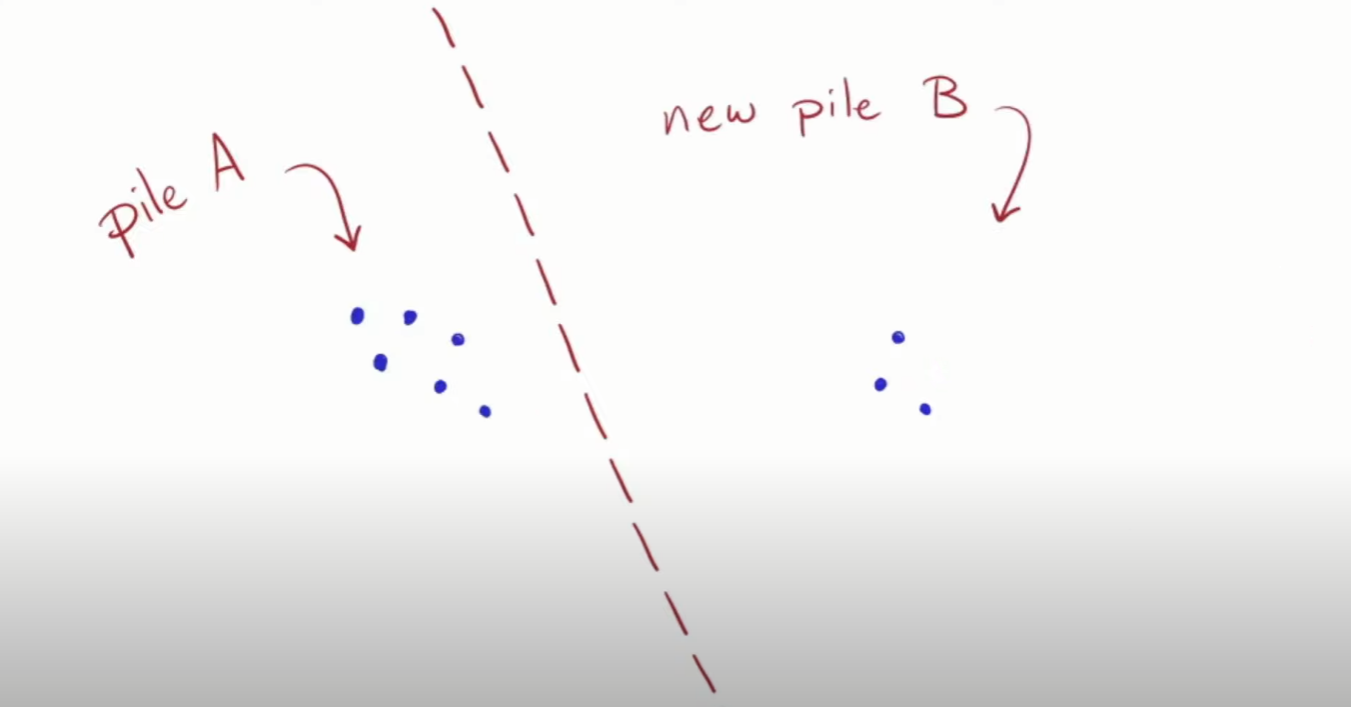 pile A
new pile B